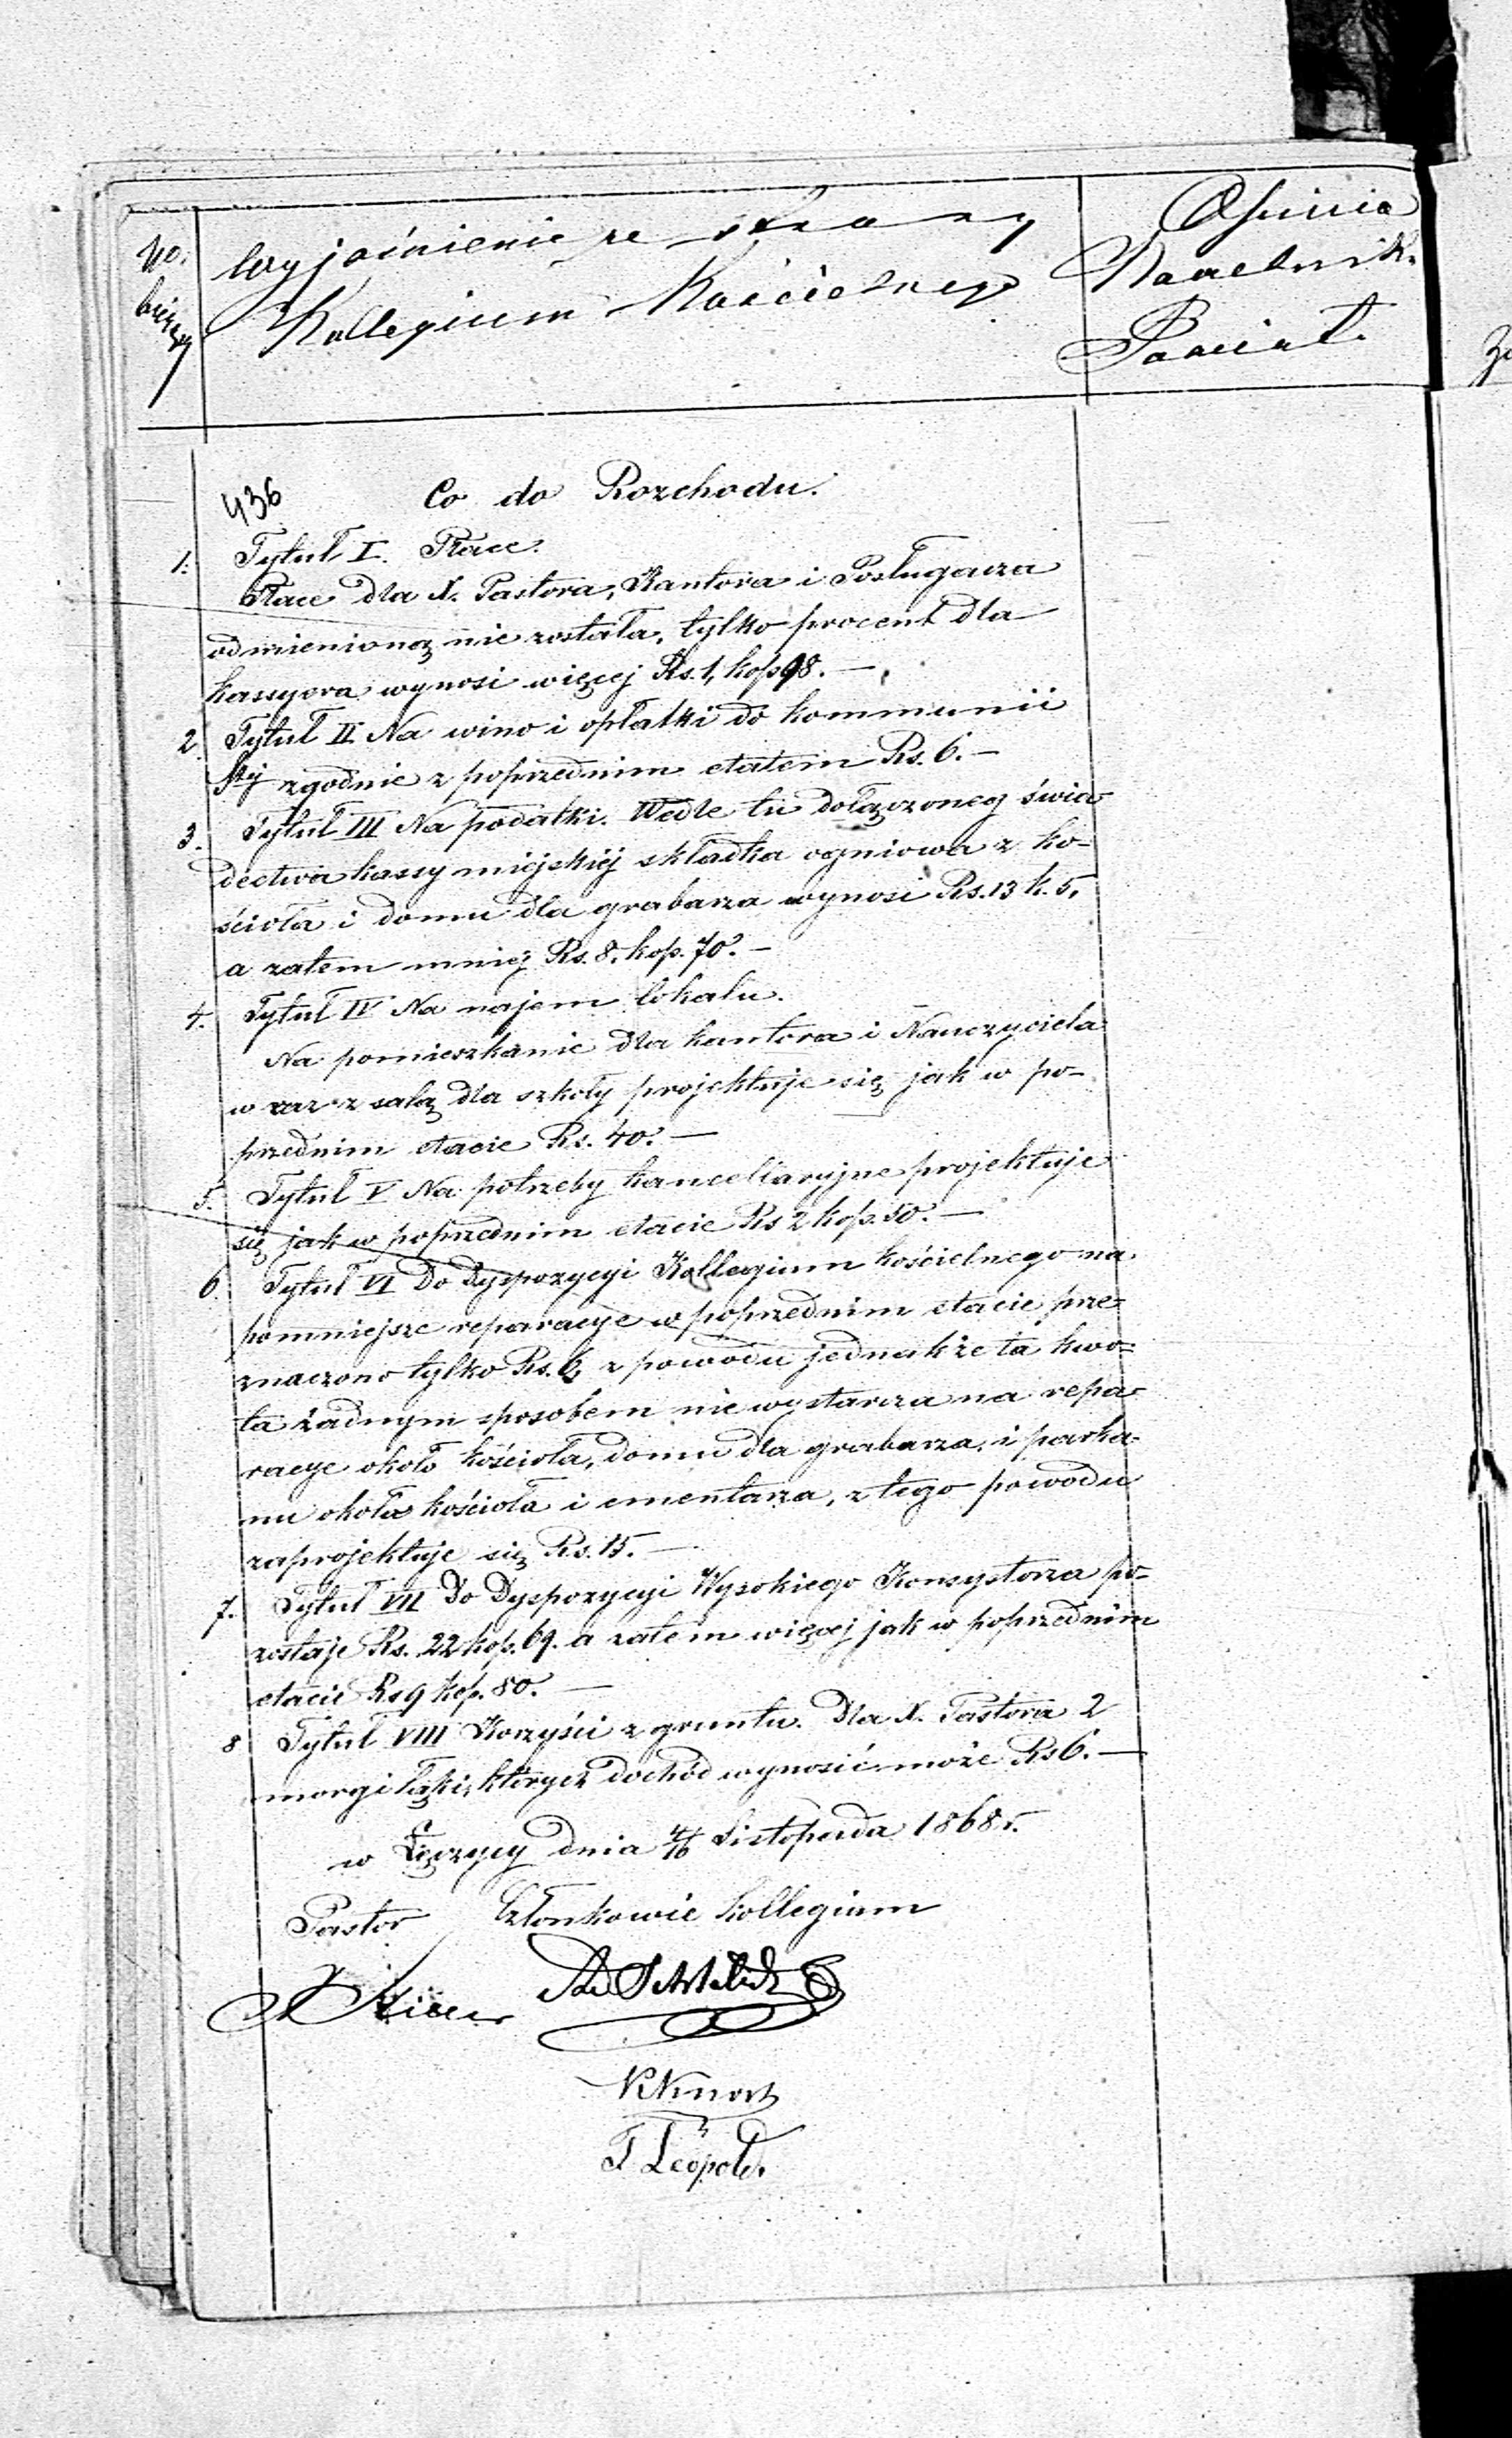 No. bieżący
Wyjaśnienie ze strony
Kollegium Kościelnego
Opinia
Naczelnik.
Powiat.
436
Co do Rozchodu.
1. Tytuł I. Płace.
Płace dla X. Pastora, Kantora i Posługacza
odmienioną nie została, tylko procent dla
kassyera wynosi więcej Rs. 1, kop 98. —
2. Tytuł II Na wino i opłatki do kommunii
Stej zgodnie z poprzednim etatem Rs. 6. —
3. Tytuł III Na podatki. Wedle tu dołączonego świa-
dectwa kassy miejskiej składka ogniowa z ko-
ścioła i domu dla grabarza wynosi Rs. 13 k. 5,
a zatem mniej Rs. 8. kop. 70. —
4. Tytuł IV Na najem lokalu.
Na pomieszkanie dla kantora i Nauczyciela
w raz z salą dla szkoły projektuje się jak w po-
przednim etacie Rs. 40. —
5. Tytuł V Na potrzeby kancellaryjne projektuje
się jak w poprzednim etacie Rs 2 kop. 50. —
6. Tytuł VI Do Dyspozycyi Kollegium kościelnego na
pomniejsze reparacye w poprzednim etacie prze-
znaczono tylko Rs. 6, z powodu jednakże ta kwo-
ta żadnym sposobem nie wystarcza na repa-
racye około kościoła, domu dla grabarza, i parka-
nu około kościoła i cmentarza, z tego powodu
zaprojektuje się Rs. 15. —
7. Tytuł VII Do Dyspozycyi Wysokiego Konsystorza po-
zostaje Rs. 22 kop. 69. a zatem więcej jak w poprzednim
etacie Rs 9 kop. 80. —
8 Tytuł VIII Korzyści z gruntu. Dla X. Pastora 2
morgi łąki, których dochód wynosić może Rs 6. —
w Łęczycy dnia 4/16 Listopada 1868 r.
Pastor Członkowie Kollegium
T Leopold.